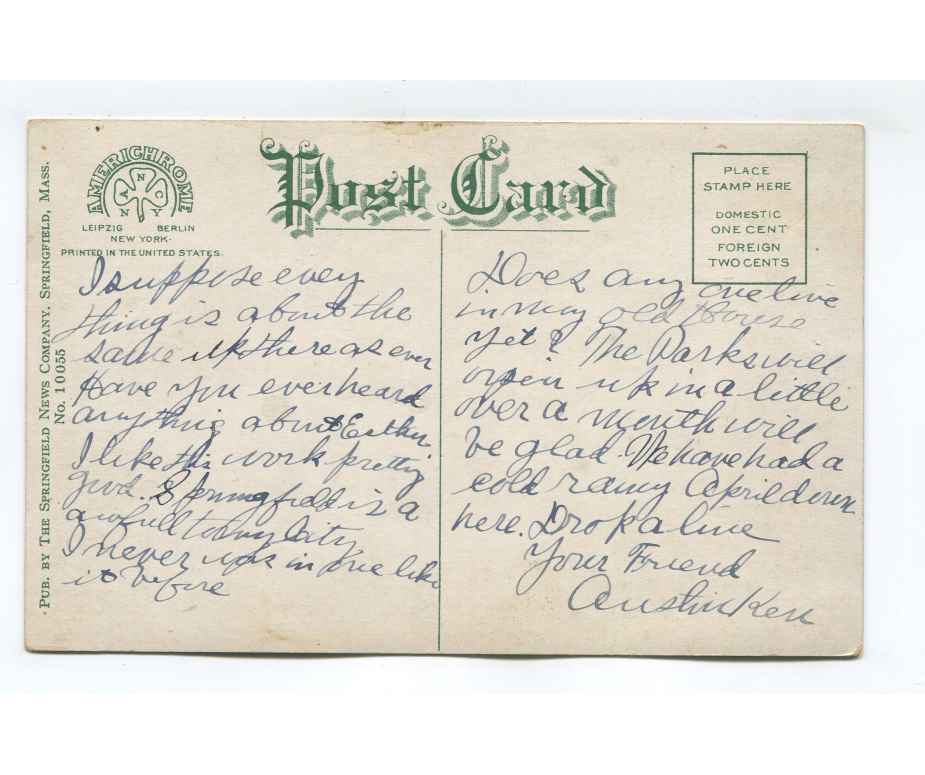 PUB. BY THE SPRINGFIELD NEWS COMPANY, SPRINGFIELD, MASS.
No. 10055
AMERICHROME
ANCNY
LEIPZIG BERLIN
NEW YORK
PRINTED IN THE UNITED STATES.
Post Card
PLACE
STAMP HERE
DOMESTIC
ONE CENT
FOREIGN
TWO CENTS
I suppose every
thing is about the
same up there as ever
Have you ever heard
anything about Esther.
I like this work pretty
good. Springfield is a
awfull City
I never was in one like
it before
Does any one live
in my old House
yet? The Parks will
open up in a little
over a month will
be glad. We have had a
cold rainy April down
here. Drop a line
Your Friend
Austin